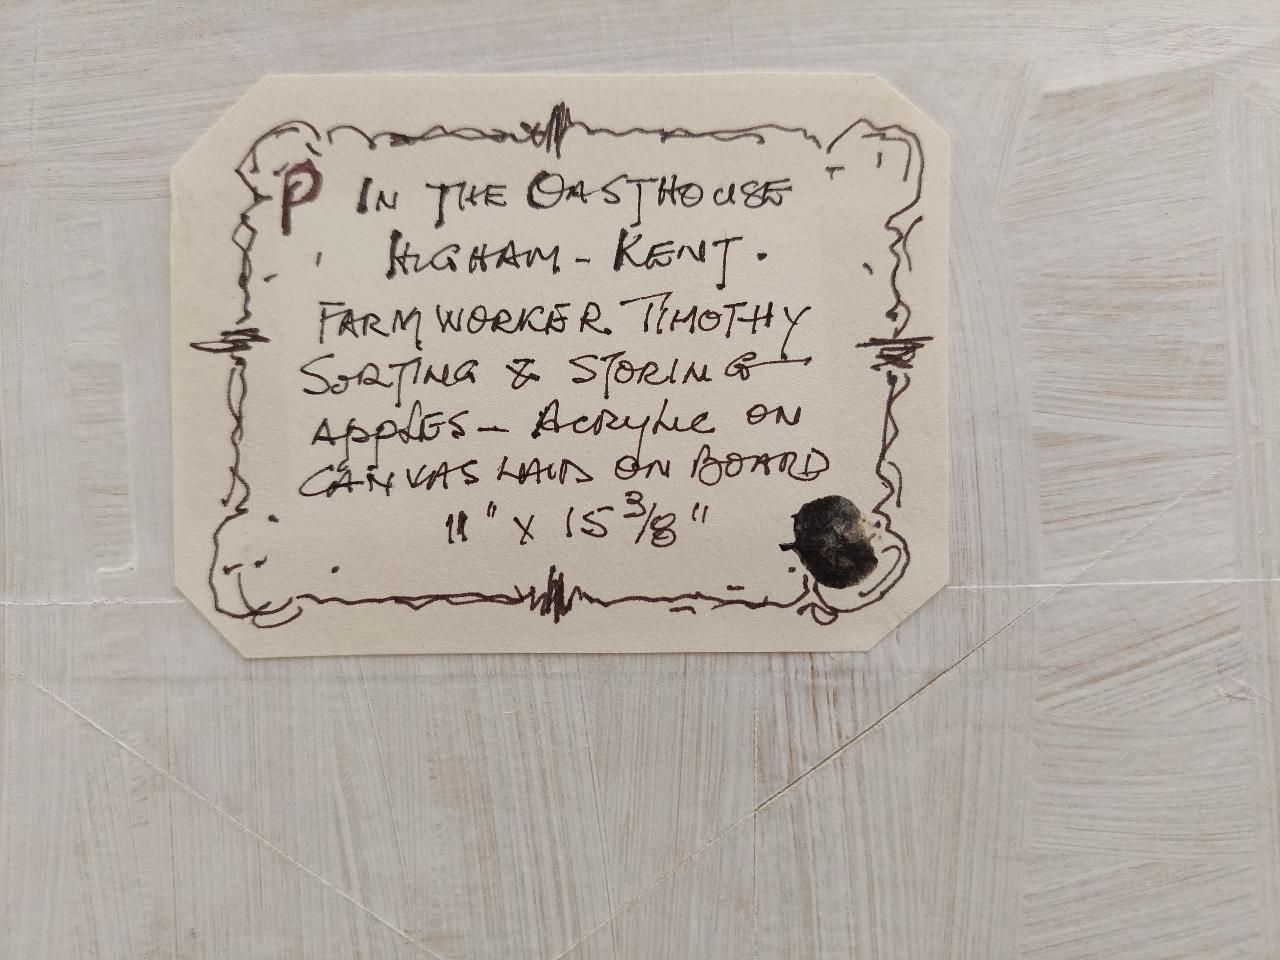 P IN THE OASTHOUSE
HIGHAM - KENT.
FARM WORKER TIMOTHY
SORTING & STORING
APPLES - ACRYLIC ON
CANVAS LAID ON BOARD
11" x 15 3/8"